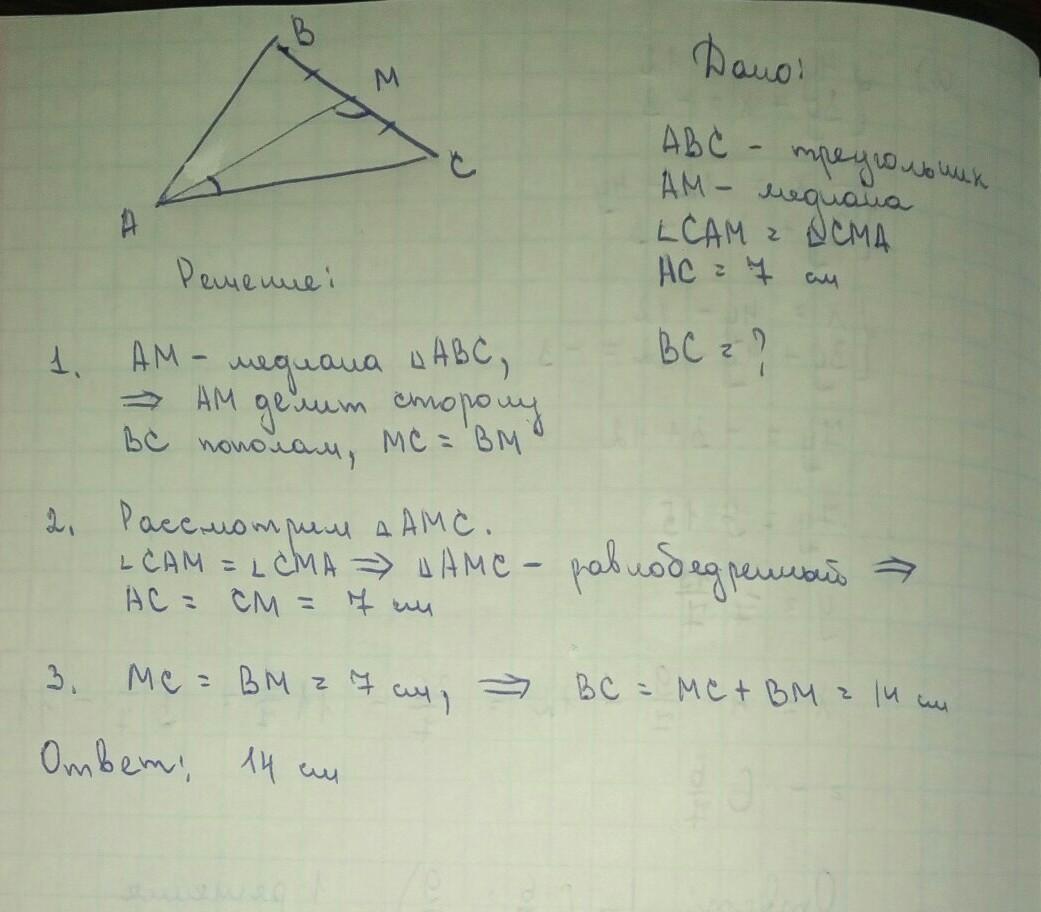 B
M
C
A
Дано:
ABC - треугольник
AM - медиана
∟CAM = △CMA
AC = 7 см
BC = ?
Решение:
1. AM - медиана △ABC,
⇒ AM делит сторону
BC пополам, MC = BM
2. Рассмотрим △AMC.
∟CAM = ∟CMA ⇒ △AMC - равнобедренный ⇒
AC = CM = 7 см
3. MC = BM = 7 см, ⇒ BC = MC + BM = 14 см
Ответ: 14 см